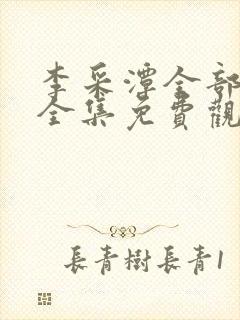 李采潭全部
全集免費觀
長青樹長青1